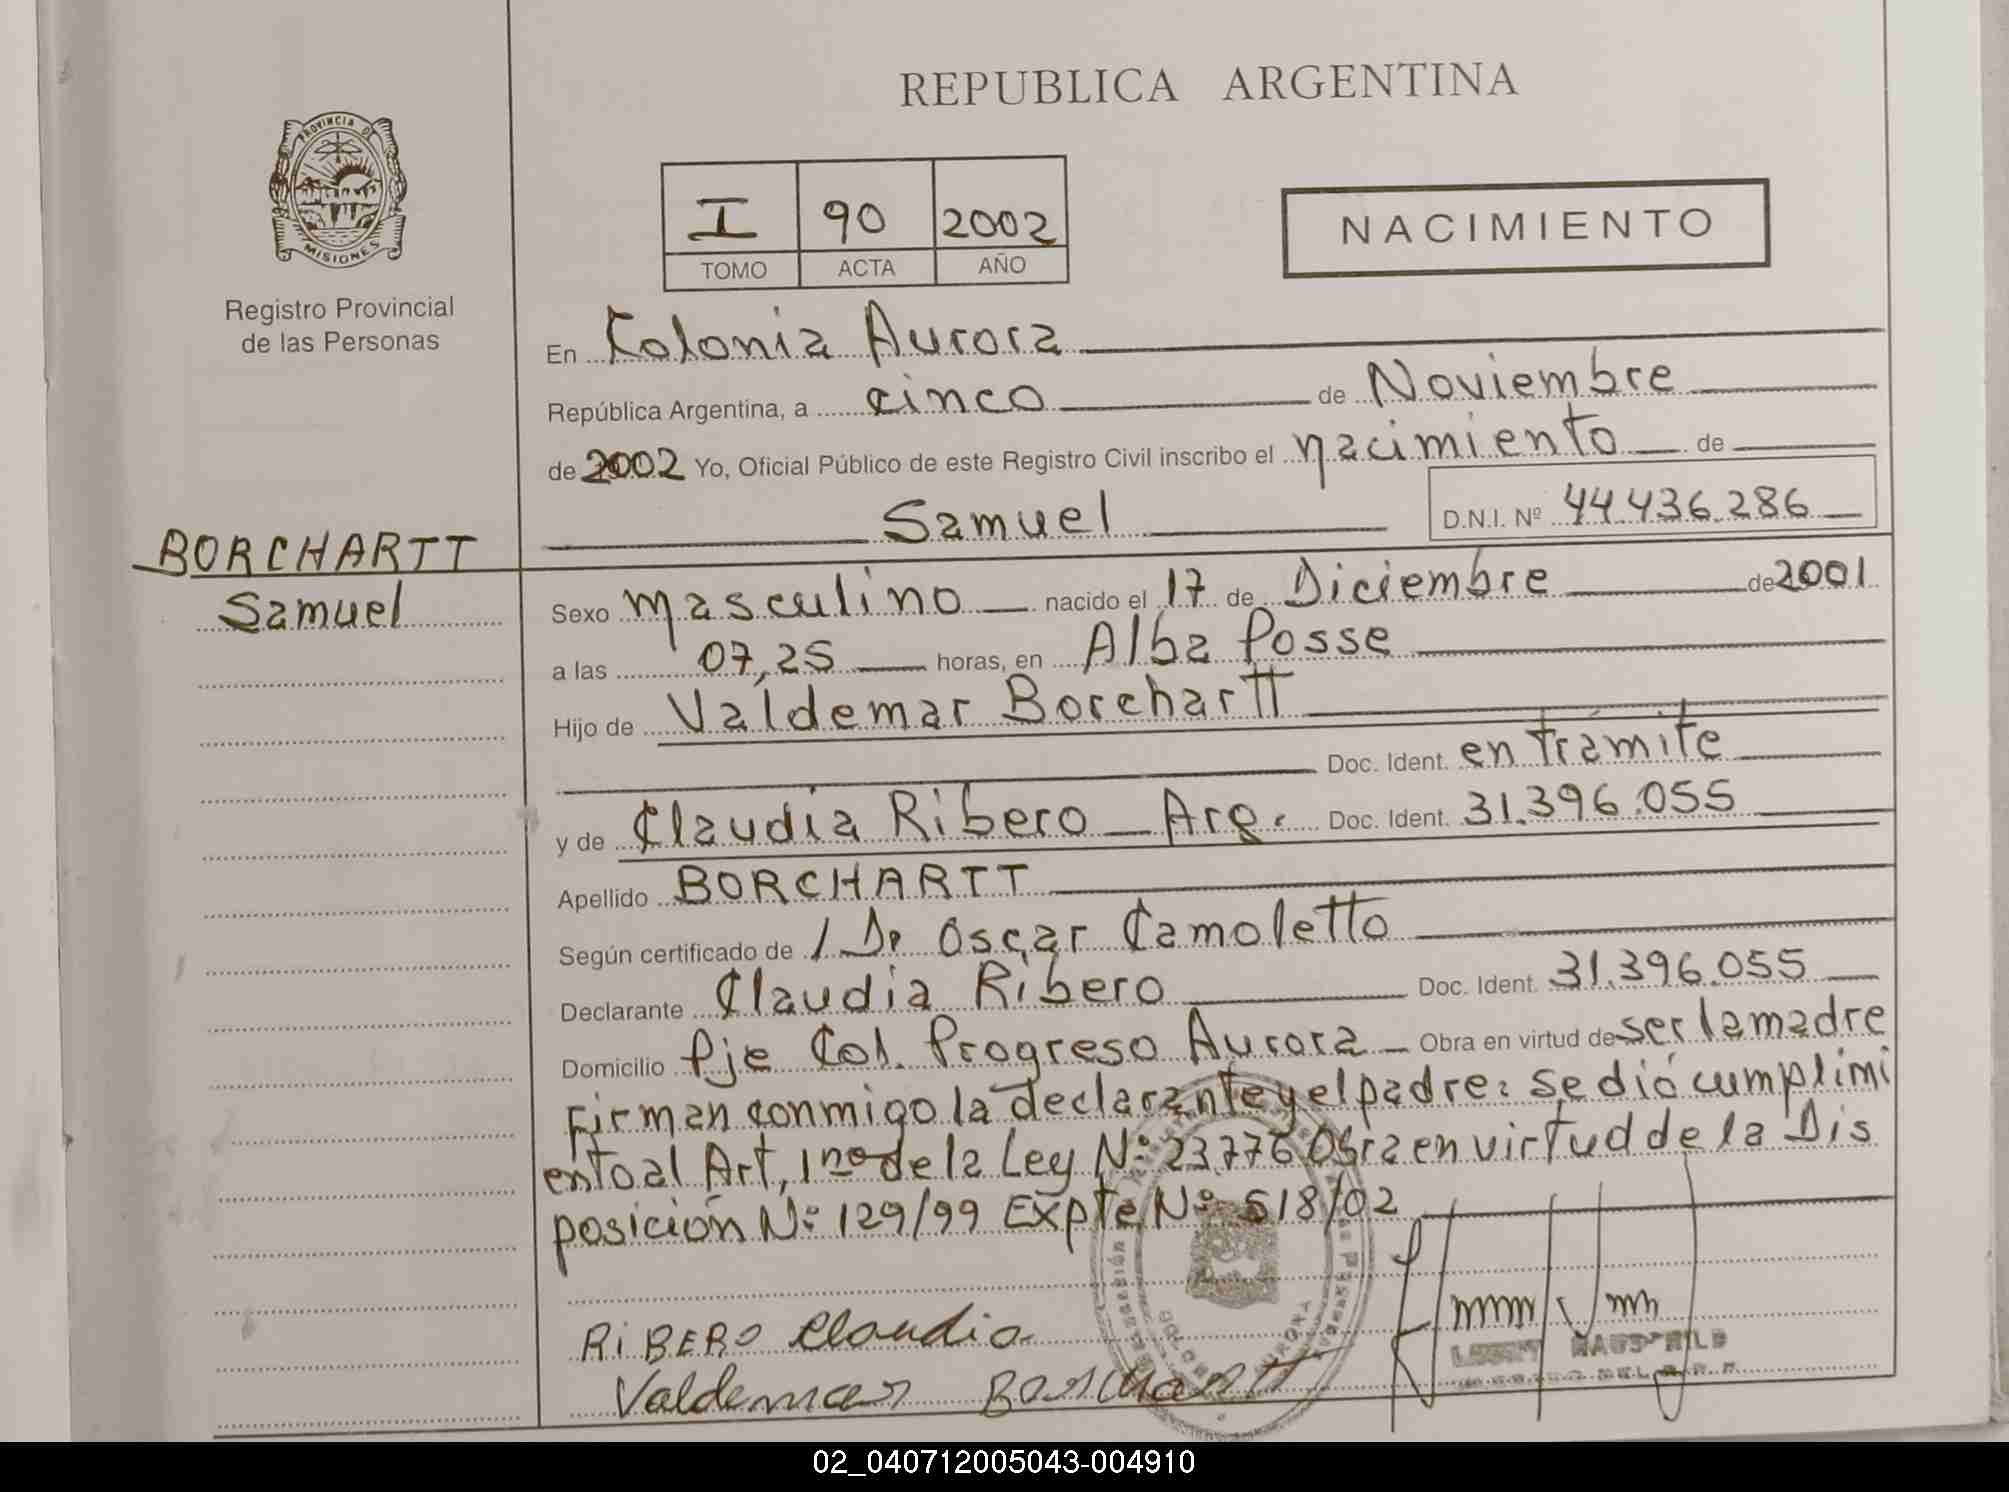 REPUBLICA ARGENTINA
PROVINCIA DE
MISIONES
Registro Provincial
de las Personas
I 90 2002
TOMO ACTA AÑO
NACIMIENTO
En Colonia Aurora
República Argentina, a cinco de Noviembre
de 2002 Yo, Oficial Público de este Registro Civil inscribo el nacimiento de
Samuel D.N.I. Nº 44.436.286
BORCHARTT
Samuel
Sexo masculino nacido el 17 de Diciembre de 2001
a las 07,25 horas, en Alba Posse
Hijo de Valdemar Borchartt
Doc. Ident. en trámite
y de Claudia Ribero Arg. Doc. Ident. 31.396.055
Apellido BORCHARTT
Según certificado de Dr Oscar Camoletto
Declarante Claudia Ribero Doc. Ident. 31.396.055
Domicilio Pje Col. Progreso Aurora Obra en virtud de ser la madre
Firman conmigo la declarante y el padre: se dió cumplimi
ento al Art, 1no de la Ley Nº 23.776 Obra en virtud de la Dis
posición Nº 129/99 Expte Nº 518/02
RiBERO Claudia
Valdemar Borchartt
02_040712005043-004910